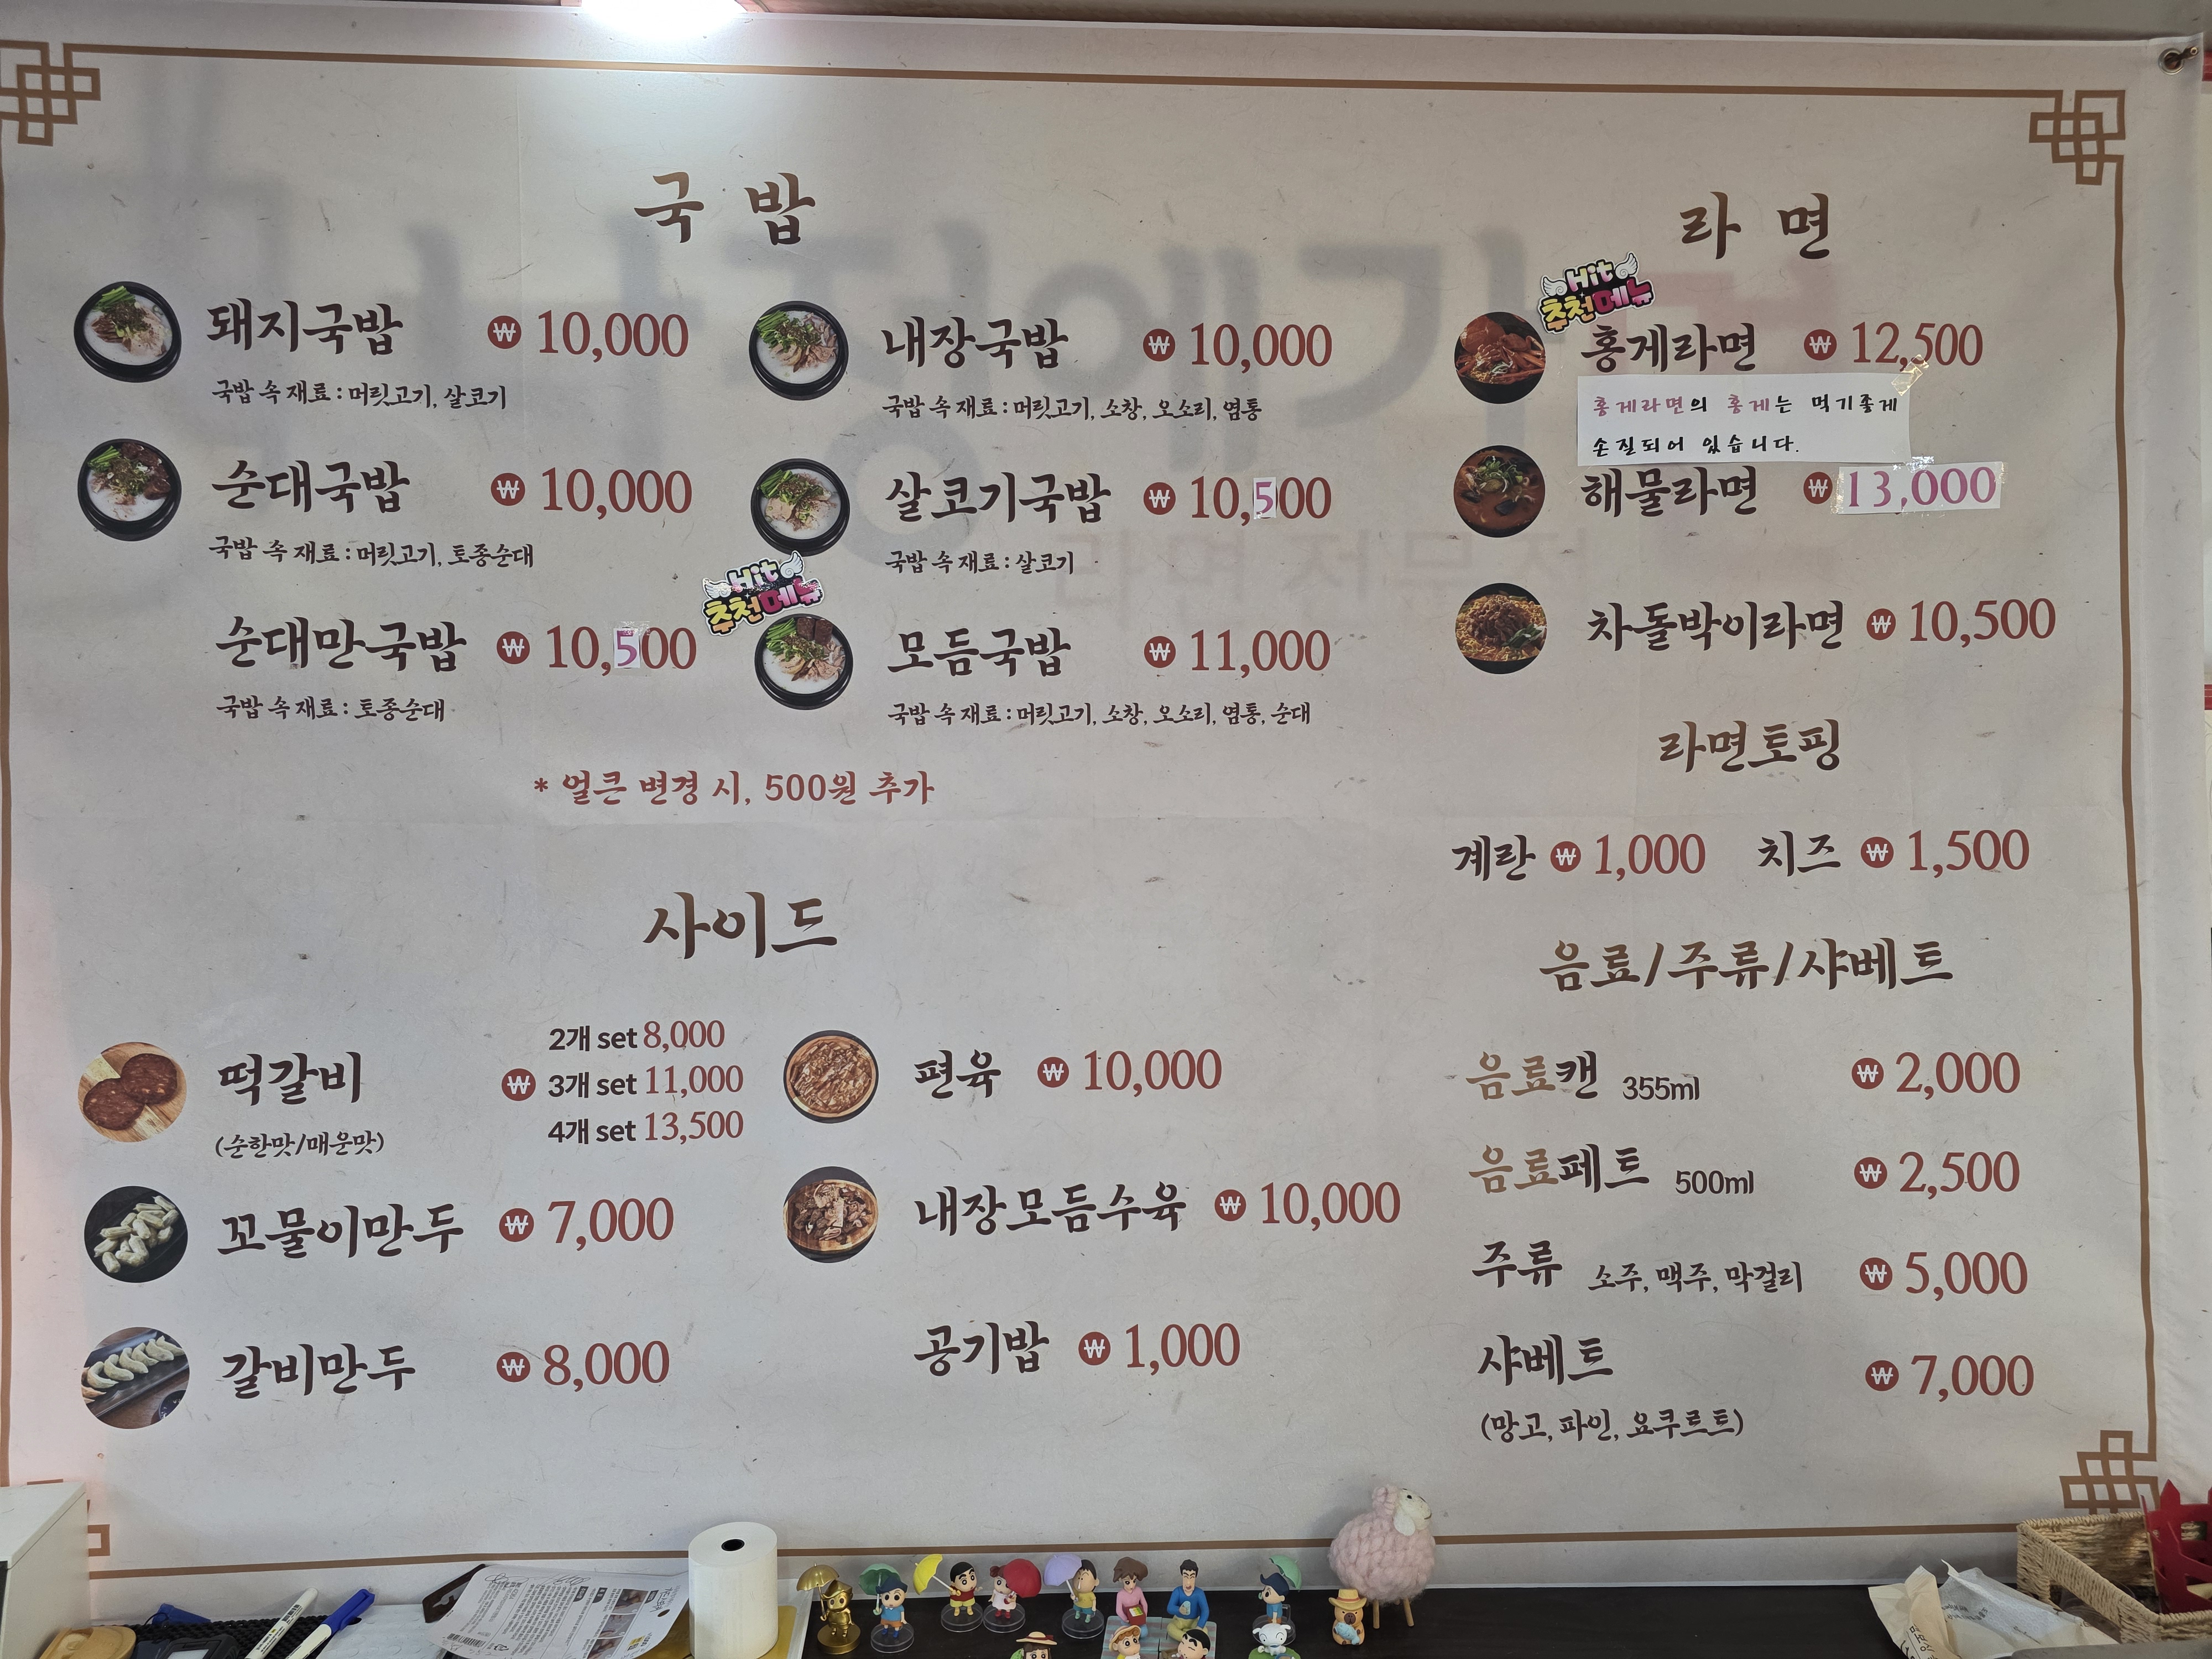 국 밥
돼지국밥 ₩ 10,000
국밥 속 재료 : 머릿고기, 살코기
순대국밥 ₩ 10,000
국밥 속 재료 : 머릿고기, 토종순대
순대만국밥 ₩ 10,500
국밥 속 재료 : 토종순대
내장국밥 ₩ 10,000
국밥 속 재료 : 머릿고기, 소창, 오소리, 염통
살코기국밥 ₩ 10,500
국밥 속 재료 : 살코기
Hit
추천메뉴
모듬국밥 ₩ 11,000
국밥 속 재료 : 머릿고기, 소창, 오소리, 염통, 순대
* 얼큰 변경 시, 500원 추가
사이드
떡갈비
(순한맛/매운맛)
₩
2개 set 8,000
3개 set 11,000
4개 set 13,500
꼬물이만두 ₩ 7,000
갈비만두 ₩ 8,000
편육 ₩ 10,000
내장모듬수육 ₩ 10,000
공기밥 ₩ 1,000
라 면
Hit
추천메뉴
홍게라면 ₩ 12,500
홍게라면의 홍게는 먹기좋게
손질되어 있습니다.
해물라면 ₩ 13,000
차돌박이라면 ₩ 10,500
라면토핑
계란 ₩ 1,000 치즈 ₩ 1,500
음료/주류/샤베트
음료캔 355ml ₩ 2,000
음료페트 500ml ₩ 2,500
주류 소주, 맥주, 막걸리 ₩ 5,000
샤베트 ₩ 7,000
(망고, 파인, 요쿠르트)